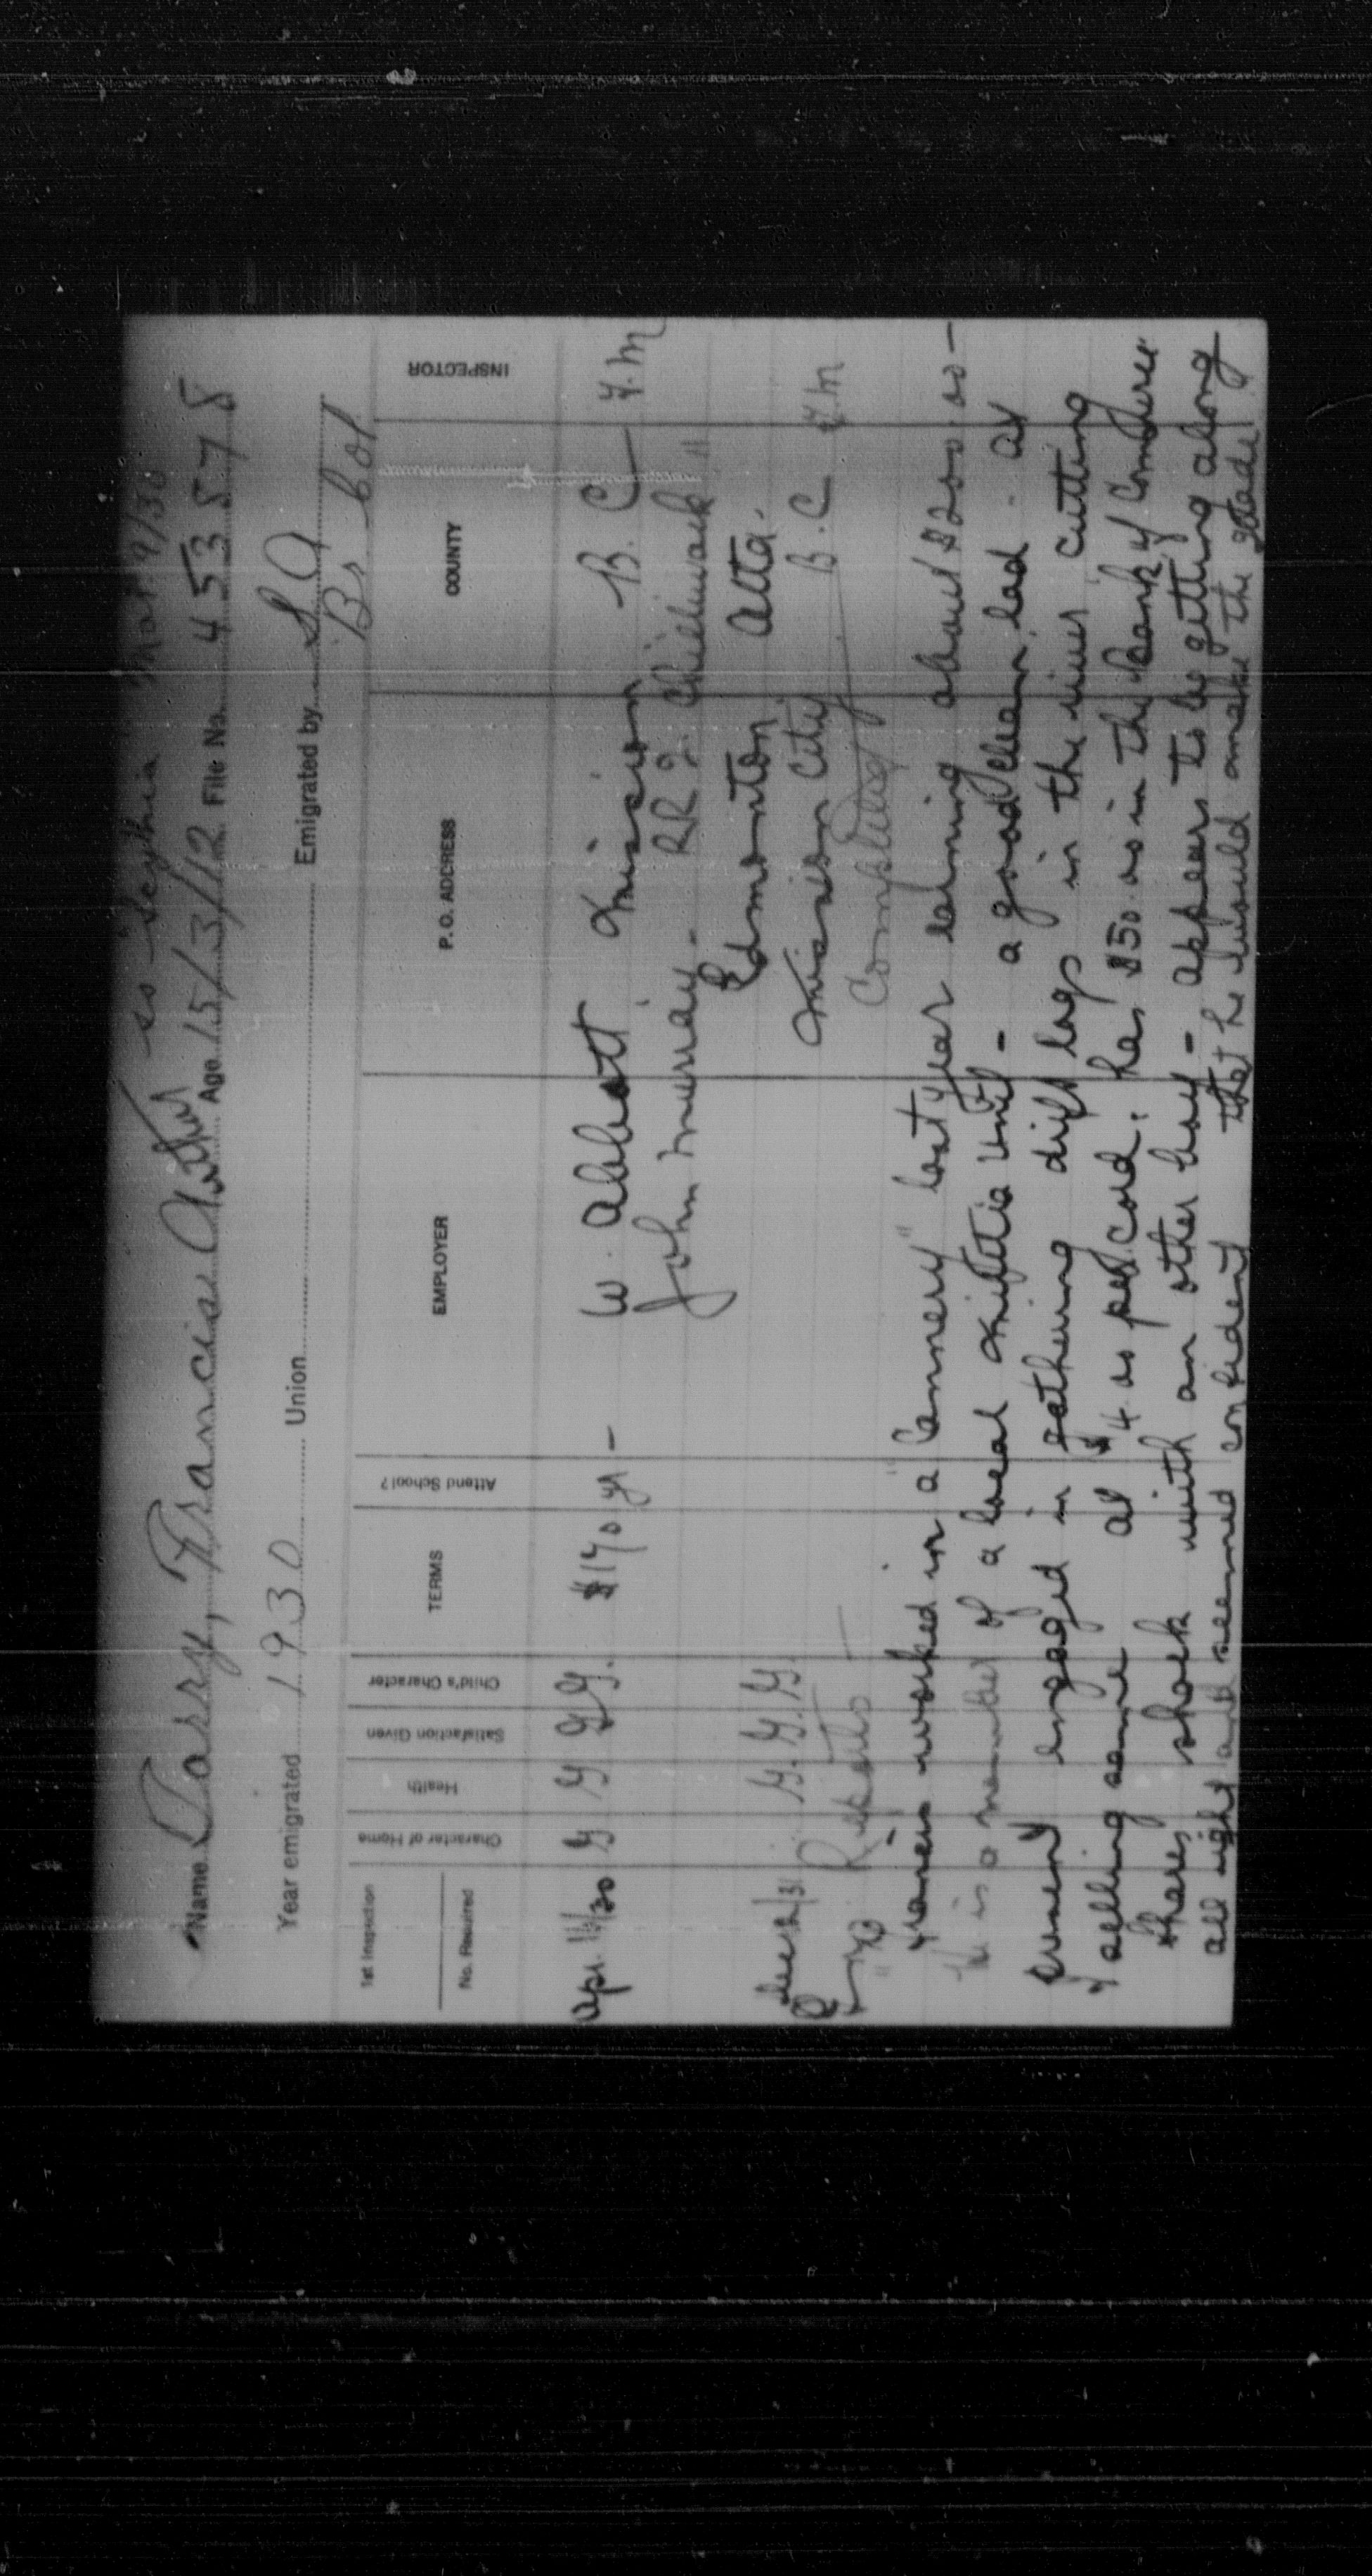 ss Scythia Mar 9/30
Name Darry, Francis Arthur Age 15/3/12 File No. 453578
Year emigrated 1930 Union Emigrated by S A
Br Col
1st Inspection
No. Required
Character of Home Health Satisfaction Given Child's Character TERMS Attend School? EMPLOYER P. O. ADDRESS COUNTY INSPECTOR
Apr. 11/30 G G G G. $170 yr - W. Abbott Mission B. C
John Murray - RR 2. Chilliwack "
Edmonton Alta.
/31 G. G. G. Mission City B. C
Reports - Completed
Francis worked in a "Cannery" last year earning about $200.00 -
He is a member of a local Militia unit - a good clean lad - at
present engaged in gathering drift logs in the river cutting
& selling same at $4.00 per cord. has $50.00 in the Bank of Commerce
shares shack with an other boy - appears to be getting along
all right and seemed confident that he would make the grade